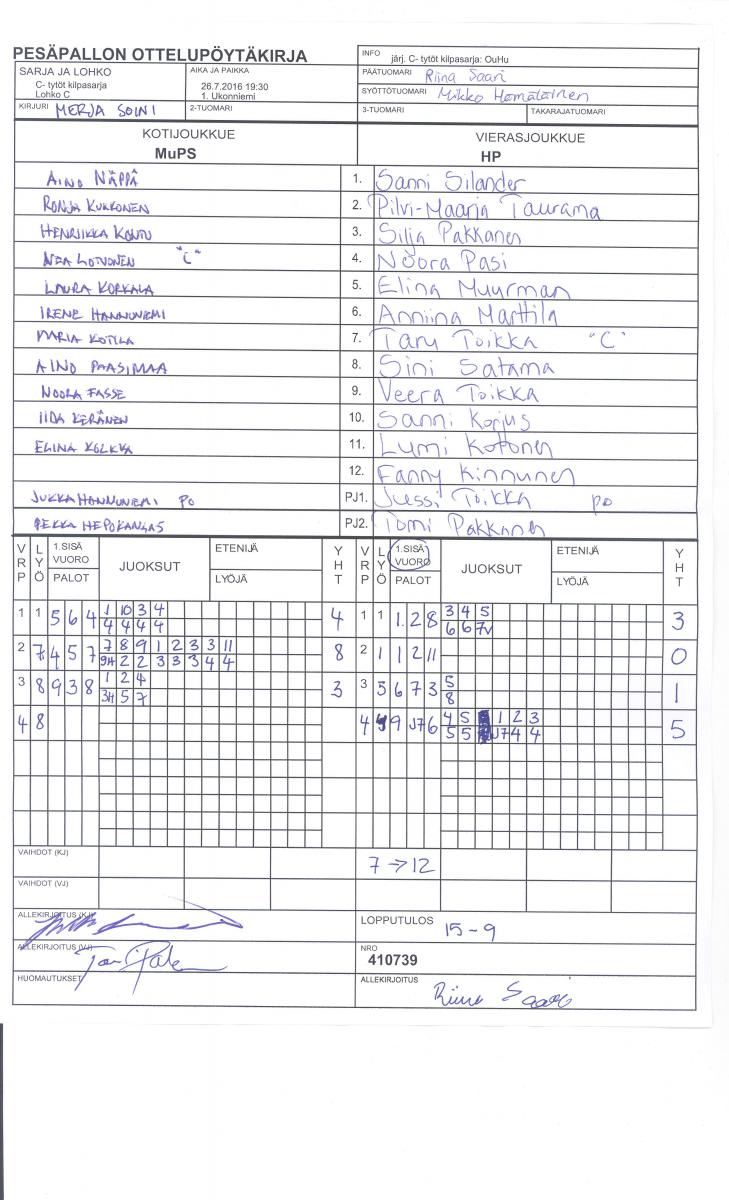 PESÄPALLON OTTELUPÖYTÄKIRJA
INFO järj. C- tytöt kilpasarja: OuHu
SARJA JA LOHKO
C- tytöt kilpasarja
Lohko C
AIKA JA PAIKKA
26.7.2016 19:30
1. Ukonniemi
PÄÄTUOMARI Riina Saari
SYÖTTÖTUOMARI Mikko Hämäläinen
KIRJURI MERJA SOINI
2-TUOMARI
3-TUOMARI
TAKARAJATUOMARI
KOTIJOUKKUE
MuPS
VIERASJOUKKUE
HP
AINO NÄPPÄ 1. Sanni Silander
RONJA KUKKONEN 2. Pilvi-Maaria Taurama
HENRIIKKA KONTU 3. Silja Pakkanen
NEA LOTVONEN "C" 4. Noora Pasi
LAURA KORKALA 5. Elina Muurman
IRENE HANNUNIEMI 6. Anniina Marttila
MARIA KOTILA 7. Taru Toikka "C"
AINO PAASIMAA 8. Sini Satama
NOORA FASSE 9. Veera Toikka
IIDA KERÄNEN 10. Sanni Korjus
ELINA KOLKKA 11. Lumi Kotonen
12. Fanny Kinnunen
JUKKA HANNUNIEMI PO PJ1. Jussi Toikka PO
PEKKA HEPOKANGAS PJ2. Tomi Pakkanen
VRP LYÖ 1.SISÄ VUORO PALOT JUOKSUT ETENIJÄ LYÖJÄ YHT VRP LYÖ 1.SISÄ VUORO PALOT JUOKSUT ETENIJÄ LYÖJÄ YHT
1 1 5 6 4 1 10 3 4 4 1 1 1. 2 8 3 4 5 3
4 4 4 4 6 6 7V
2 7. 4 5 7 7 8 9 1 2 3 3 11 8 2 1 1 2 11 0
9H 2 2 3 3 3 4 4
3 8 9 3 8 1 2 4 3 3 5 6 7 3 5 1
3H 5 7 8
4 8 4 9 J7 6 4 5 1 2 3 5
5 5 J7 4 4
VAIHDOT (KJ) 7 → 12
VAIHDOT (VJ)
ALLEKIRJOITUS (KJ)
LOPPUTULOS 15 - 9
ALLEKIRJOITUS (VJ)
NRO
410739
HUOMAUTUKSET
ALLEKIRJOITUS Riina Saari